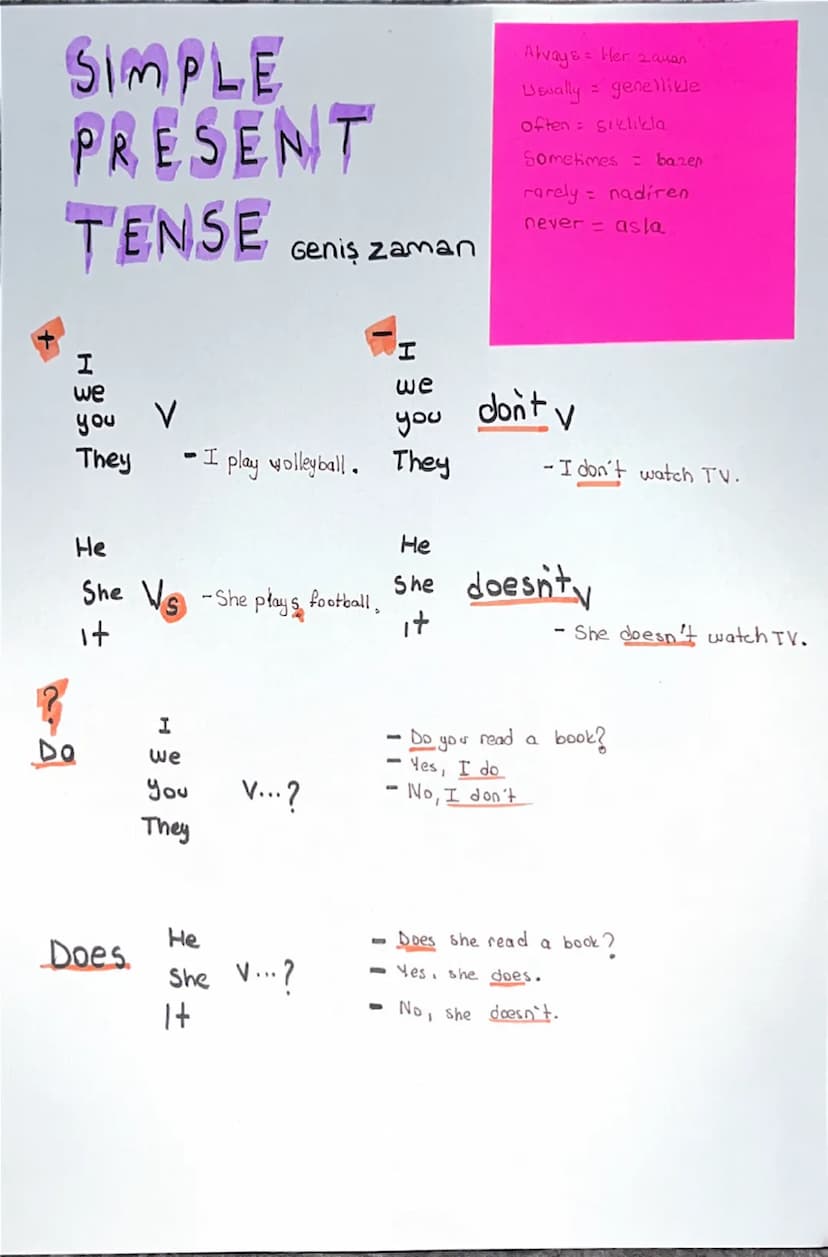 SIMPLE
PRESENT
TENSE Geniş zaman
Always = Her zaman
Usually = genellikle
often = sıklıkla
Sometimes = bazen
rarely = nadiren
never = asla
+
I
we
you V
They - I play wolleyball.
-
I
we
you don't V
They - I don't watch TV.
He
She Vs - She plays football.
It
He
She doesn't V
It - She doesn't watch TV.
?
Do
I
we
you V...?
They
- Do you read a book?
- Yes, I do
- No, I don't
Does
He
She V...?
It
- Does she read a book?
- Yes, she does.
- No, she doesn't.